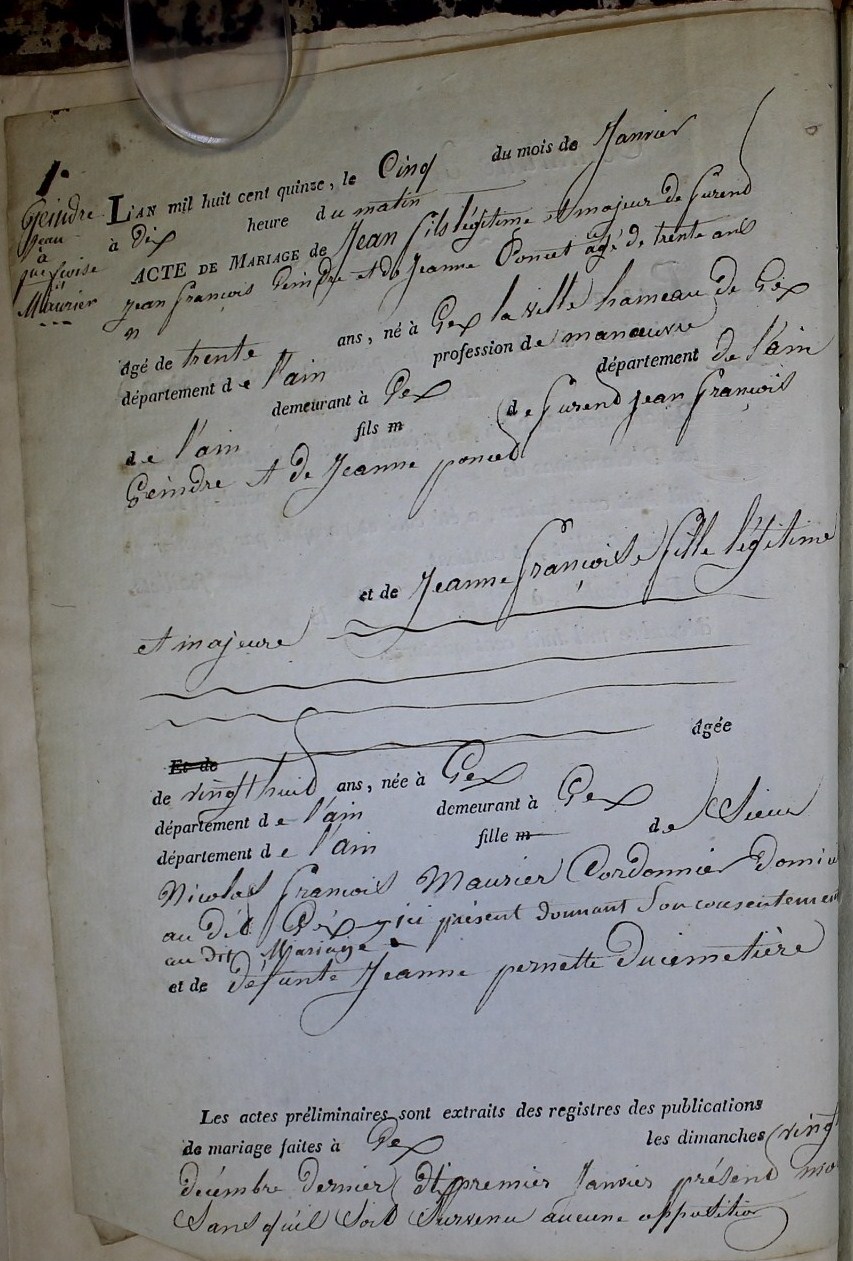 1.
Geindre
Jean
à
jne fcoise
Maurier
L'AN mil huit cent quinze, le Cinq du mois de Janvier
à dix heure du matin
ACTE DE MARIAGE de Jean fils légitime et majeur de furend
Jean François Geindre et de Jeanne Poncet âgé de trente ans
âgé de trente ans, né à Gex la ville hameau de Gex
département de l'ain profession de manœuvre
demeurant à Gex département de l'ain
de l'ain fils de furend jean François
Geindre et de Jeanne poncet
et de Jeanne Françoise fille légitime
et majeure
Et de âgée
de vingt huit ans, née à Gex
département de l'ain demeurant à Gex
département de l'ain fille de Sieur
Nicolas François Maurier Cordonnier Domici
au dit Gex ici présent donnant Son consentement
au dit Mariage
et de défunte Jeanne pernette Ducimetière
Les actes préliminaires sont extraits des registres des publications
de mariage faites à Gex les dimanches vingt
decembre dernier et premier Janvier présent mo
Sans qu'il Soit Survenu aucune opposition